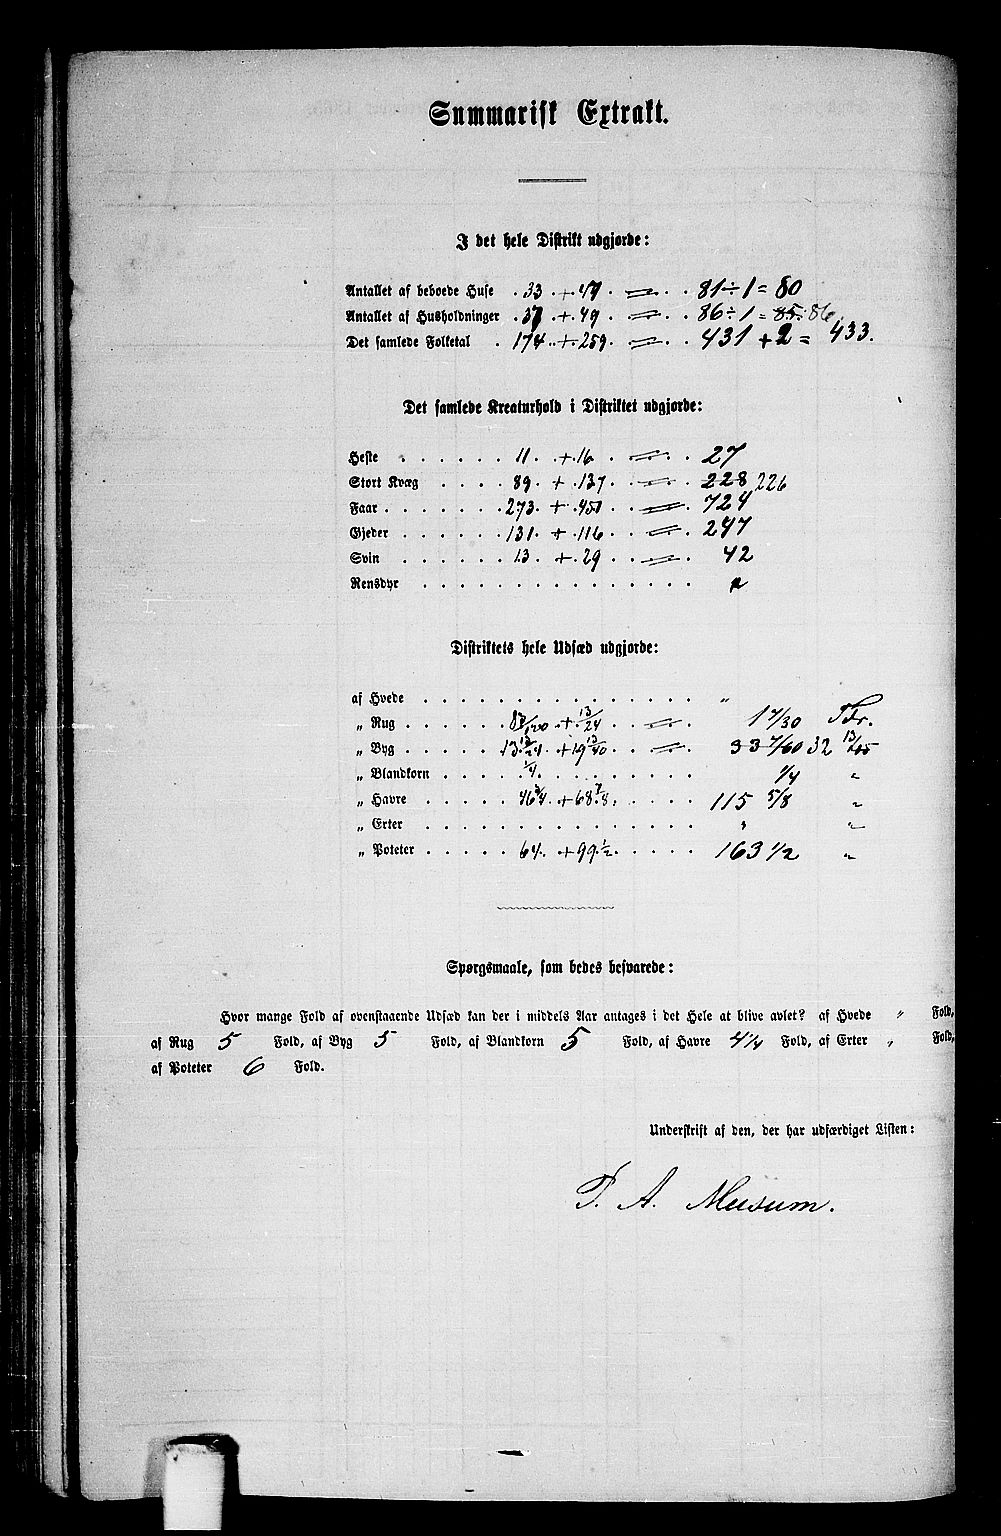 Summarisk Extrakt.
I det hele Distrikt udgjorde:
Antallet af beboede Huse . 33 . + 47 . = . . 81 ÷ 1 = 80
Antallet af Husholdninger . 37 . + 49 . = . . 86 ÷ 1 = 85. 86.
Det samlede Folketal . 174 . + . 259 . = . . 431 + 2 = 433.
Det samlede Kreaturhold i Distriktet udgjorde:
Heste . . . . . . 11 . + . 16 . . = . . 27
Stort Kvæg . . . . 89 . + . 137 . . = . . 228 226
Faar . . . . . . . 273 . + . 451 . . = . 724
Gjeder . . . . . . 131 . + . 116 . . = . 247
Svin . . . . . . 13 . + . 29 . . = . 42
Rensdyr . . . . . . . . . . . . . . .
Distriktets hele Udsæd udgjorde:
af Hvede . . . . . . . . . . . . . . . "
„ Rug . . . . . + 13/24 . . = . . 1 7/30 Tdr.
„ Byg . . . . . 13 13/24 . + 19 13/40 . . = . . 33 7/60 32 13/15
„ Blandkorn . . . . 1/4 . . . . . . . . 1/4 "
„ Havre . . . . . 46 3/4 . + 68 7/8 . . . . . 115 5/8 "
„ Erter . . . . . . . . . . . . . . . " "
„ Poteter . . . . . 64 . . + 99 1/2 . . . . . 163 1/2 "
Spørgsmaale, som bedes besvarede:
Hvor mange Fold af ovenstaaende Udsæd kan der i middels Aar antages i det Hele at blive avlet? af Hvede " Fold,
af Rug 5 Fold, af Byg 5 Fold, af Blandkorn 5 Fold, af Havre 4 1/4 Fold, af Erter " Fold,
af Poteter 6 Fold.
Underskrift af den, der har udfærdiget Listen:
P. A. Musum.